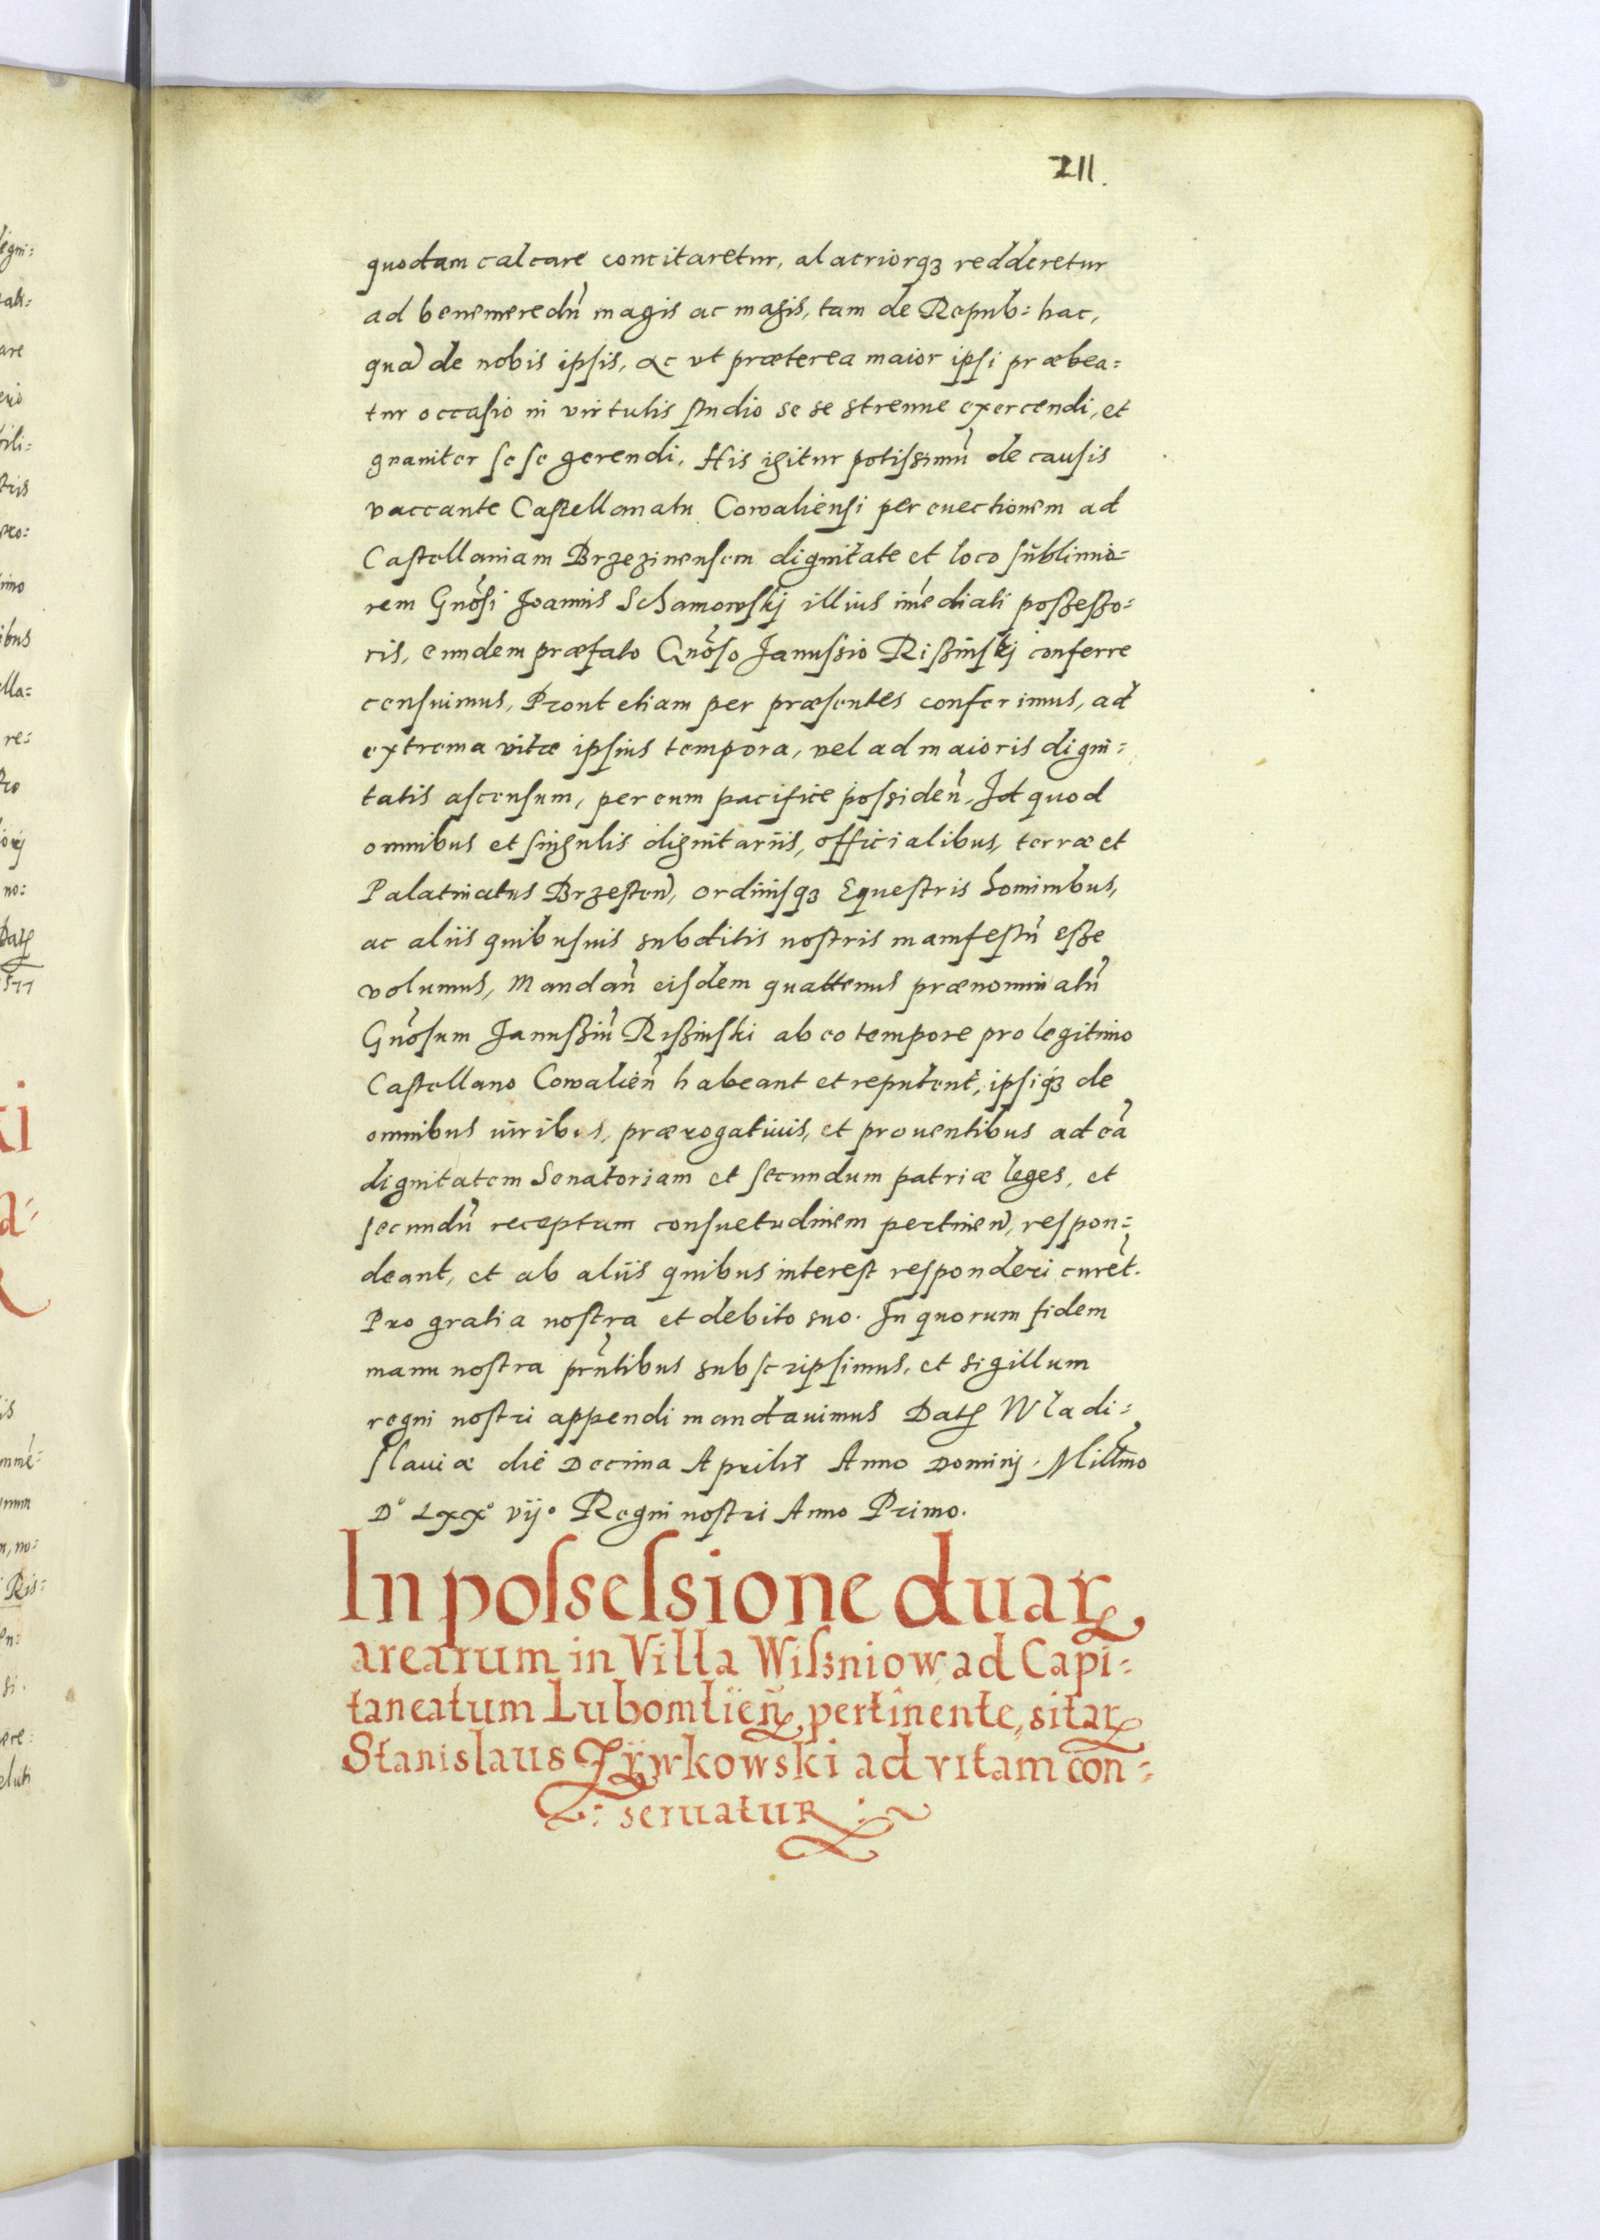 211.
quodam calcare concitaretur, alacriorq3 redderetur
ad benemeredũ magis ac magis, tam de Repub: hac,
quã de nobis ipsis, ac vt præterea maior ipsi præbea=
tur occasio in virtutis studio se se strenue exercendi, et
gnauiter se se gerendi. His igitur potissimũ de causis
vaccante Castellanatu Cowaliensi per euectionem ad
Castellaniam Brzezinensem dignitate et loco sublimio=
rem Gnõsi Joannis Schamowskj illius imediati possesso=
ris, eundem præfato Gnõso Janussio Rissinskj conferre
censuimus, Prout etiam per præsentes conferimus, ad
extrema vitæ ipsius tempora, vel ad maioris digni=
tatis ascensum, per eum pacifice possideñ. Id quod
omnibus et singulis dignitariis, officialibus, terræ et
Palatinatus Brzesteñ, ordinisq3 Equestris hominibus,
ac aliis quibusuis subditis nostris manifestũ esse
volumus, Mandañ eisdem quattenus prænominatũ
Gnõsum Janussiũ Rissinski ab eo tempore pro legitimo
Castellano Cowalieñ habeant et reputent, ipsiq3 de
omnibus iuribus, prærogatiuis, et prouentibus ad eã
dignitatem Senatoriam et secundum patriæ leges, et
secundũ receptam consuetudinem pertineñ, respon=
deant, et ab aliis quibus interest responderi curẽt.
Pro gratia nostra et debito suo. In quorum fidem
manu nostra prñtibus subscripsimus, et sigillum
regni nostri appendi mandauimus Datꝭ Wladi=
slauiæ die Decima Aprilis Anno Dominj Millmo
D° LXX° vij° Regni nostri Anno Primo.
In possessione duarꝝ
arearum in Villa Wisniow ad Capi=
taneatum Lubomlieñ pertinente, sitarꝝ
Stanislaus Zÿwkowski ad vitam con=
seruatur